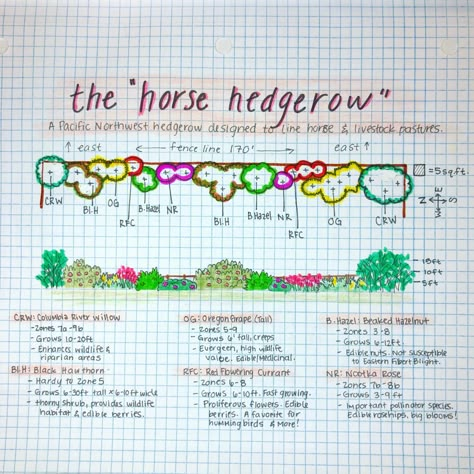 the "horse hedgerow"
A Pacific Northwest hedgerow designed to line horse & livestock pastures.
↑ east ← fence line 170' → east ↑
= 5 sq. ft.
N S E W
CRW BLH OG RFC B.Hazel NR BLH B.Hazel NR RFC OG CRW
15ft
10ft
5ft
CRW: Columbia River Willow
- Zones 7a-9b
- Grows 10-20ft
- Enhances wildlife & riparian areas
BlH: Black Hawthorn
- Hardy to Zone 5
- Grows 6-30ft tall & 6-10ft wide
- thorny shrub, provides wildlife habitat & edible berries.
OG: Oregon Grape (Tall)
- Zones 5-9
- Grows 6' tall, creeps
- Evergreen, high wildlife value. Edible/Medicinal.
RFC: Red Flowering Currant
- Zones 6-8
- Grows 6-10ft. Fast growing.
- Proliferous flowers. Edible berries. A favorite for hummingbirds & More!
B.Hazel: Beaked Hazelnut
- Zones 3-8
- Grows 6-12ft.
- Edible nuts. Not susceptible to Eastern Filbert Blight.
NR: Nootka Rose
- Zones 7b-8b
- Grows 3-9ft
- Important pollinator species. Edible rosehips, big blooms!